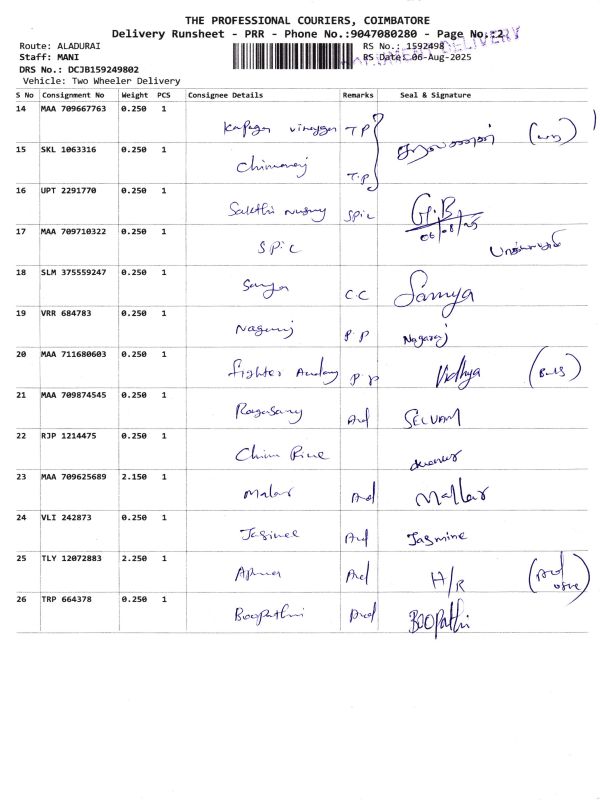 THE PROFESSIONAL COURIERS, COIMBATORE
Delivery Runsheet - PRR - Phone No.:9047080280 - Page No.:2
Route: ALADURAI RS No.: 1592498
Staff: MANI RS Date: 06-Aug-2025
DELIVERY
DRS No.: DCJB159249802
Vehicle: Two Wheeler Delivery
S No Consignment No Weight PCS Consignee Details Remarks Seal & Signature
14 MAA 709667763 0.250 1 T.P
15 SKL 1063316 0.250 1 T.P
16 UPT 2291770 0.250 1 Sakthi SPic G.B 06/08/25
17 MAA 709710322 0.250 1 SPiC
18 SLM 375559247 0.250 1 Sanya C.C Samya
19 VRR 684783 0.250 1 Nagaraj P.P Nagaraj
20 MAA 711680603 0.250 1 fighter P.P Vidhya
21 MAA 709874545 0.250 1 SELVAM
22 RJP 1214475 0.250 1
23 MAA 709625689 2.150 1 Malar Mallar
24 VLI 242873 0.250 1 Jasmine
25 TLY 12072883 2.250 1 H/R
26 TRP 664378 0.250 1 Boopathi BOOPathi